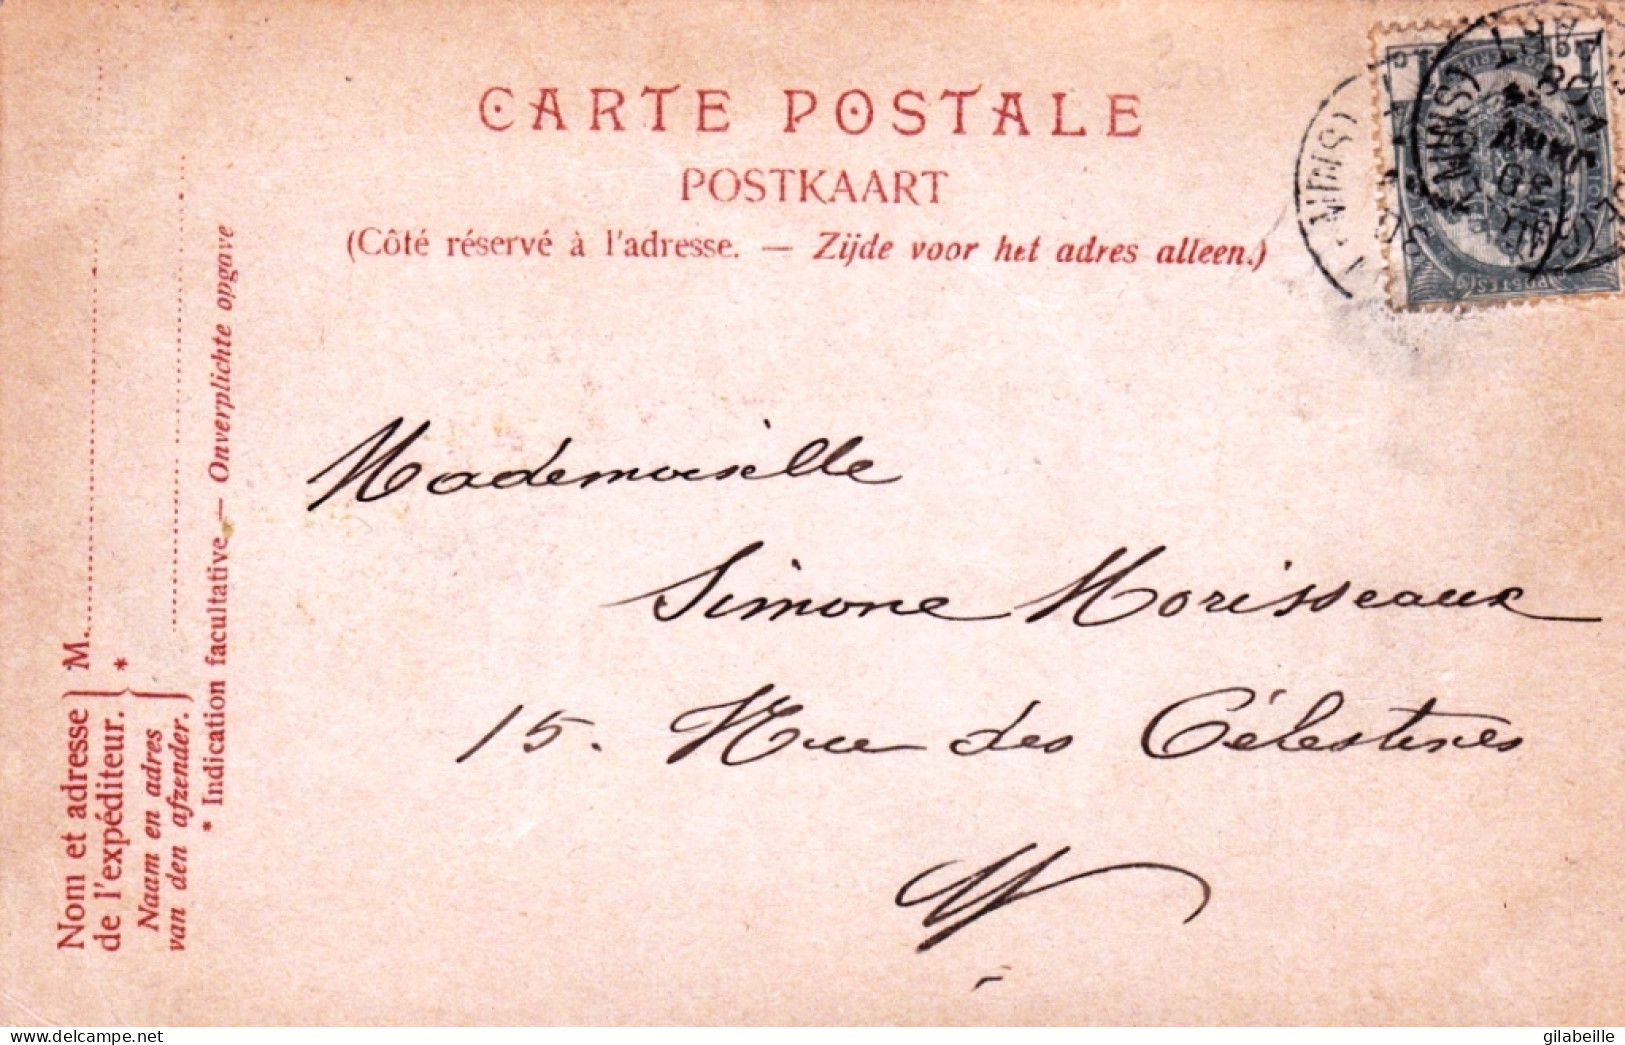 CARTE POSTALE
POSTKAART
(Côté réservé à l'adresse. — Zijde voor het adres alleen.)
Mademoiselle
Simone Morisseaux
15. Rue des Célestines
Nom et adresse
de l'expéditeur.
Naam en adres
van den afzender.
M.
*
* Indication facultative — Onverplichte opgave
POSTES
delcampe.net
gilabeille